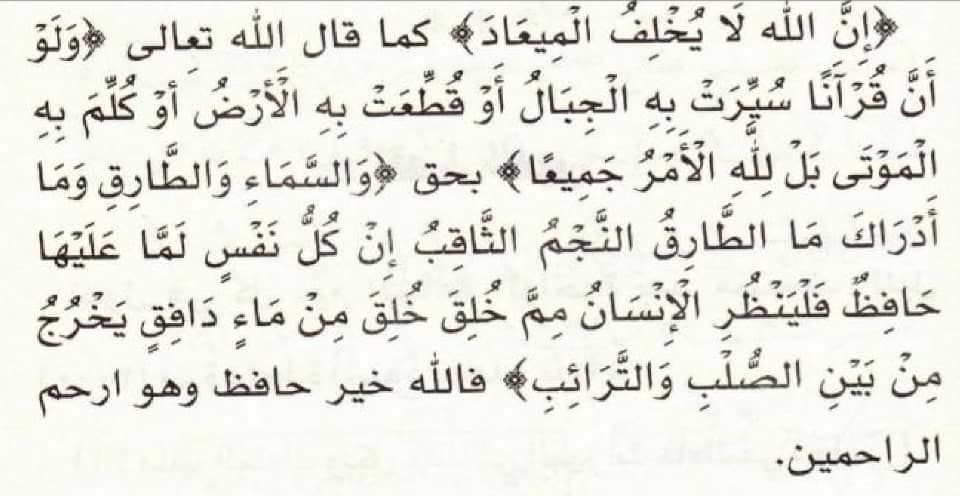 ﴿إِنَّ الله لَا يُخْلِفُ الْمِيعَادَ﴾ كما قال الله تعالى ﴿وَلَوْ
أَنَّ قُرْآنًا سُيِّرَتْ بِهِ الْجِبَالُ أَوْ قُطِّعَتْ بِهِ الْأَرْضُ أَوْ كُلِّمَ بِهِ
الْمَوْتَى بَلْ لِلَّهِ الْأَمْرُ جَمِيعًا﴾ بحق ﴿وَالسَّمَاءِ وَالطَّارِقِ وَمَا
أَدْرَاكَ مَا الطَّارِقُ النَّجْمُ الثَّاقِبُ إِنْ كُلُّ نَفْسٍ لَمَّا عَلَيْهَا
حَافِظٌ فَلْيَنْظُرِ الْإِنْسَانُ مِمَّ خُلِقَ خُلِقَ مِنْ مَاءٍ دَافِقٍ يَخْرُجُ
مِنْ بَيْنِ الصُّلْبِ وَالتَّرَائِبِ﴾ فالله خير حافظ وهو ارحم
الراحمين.